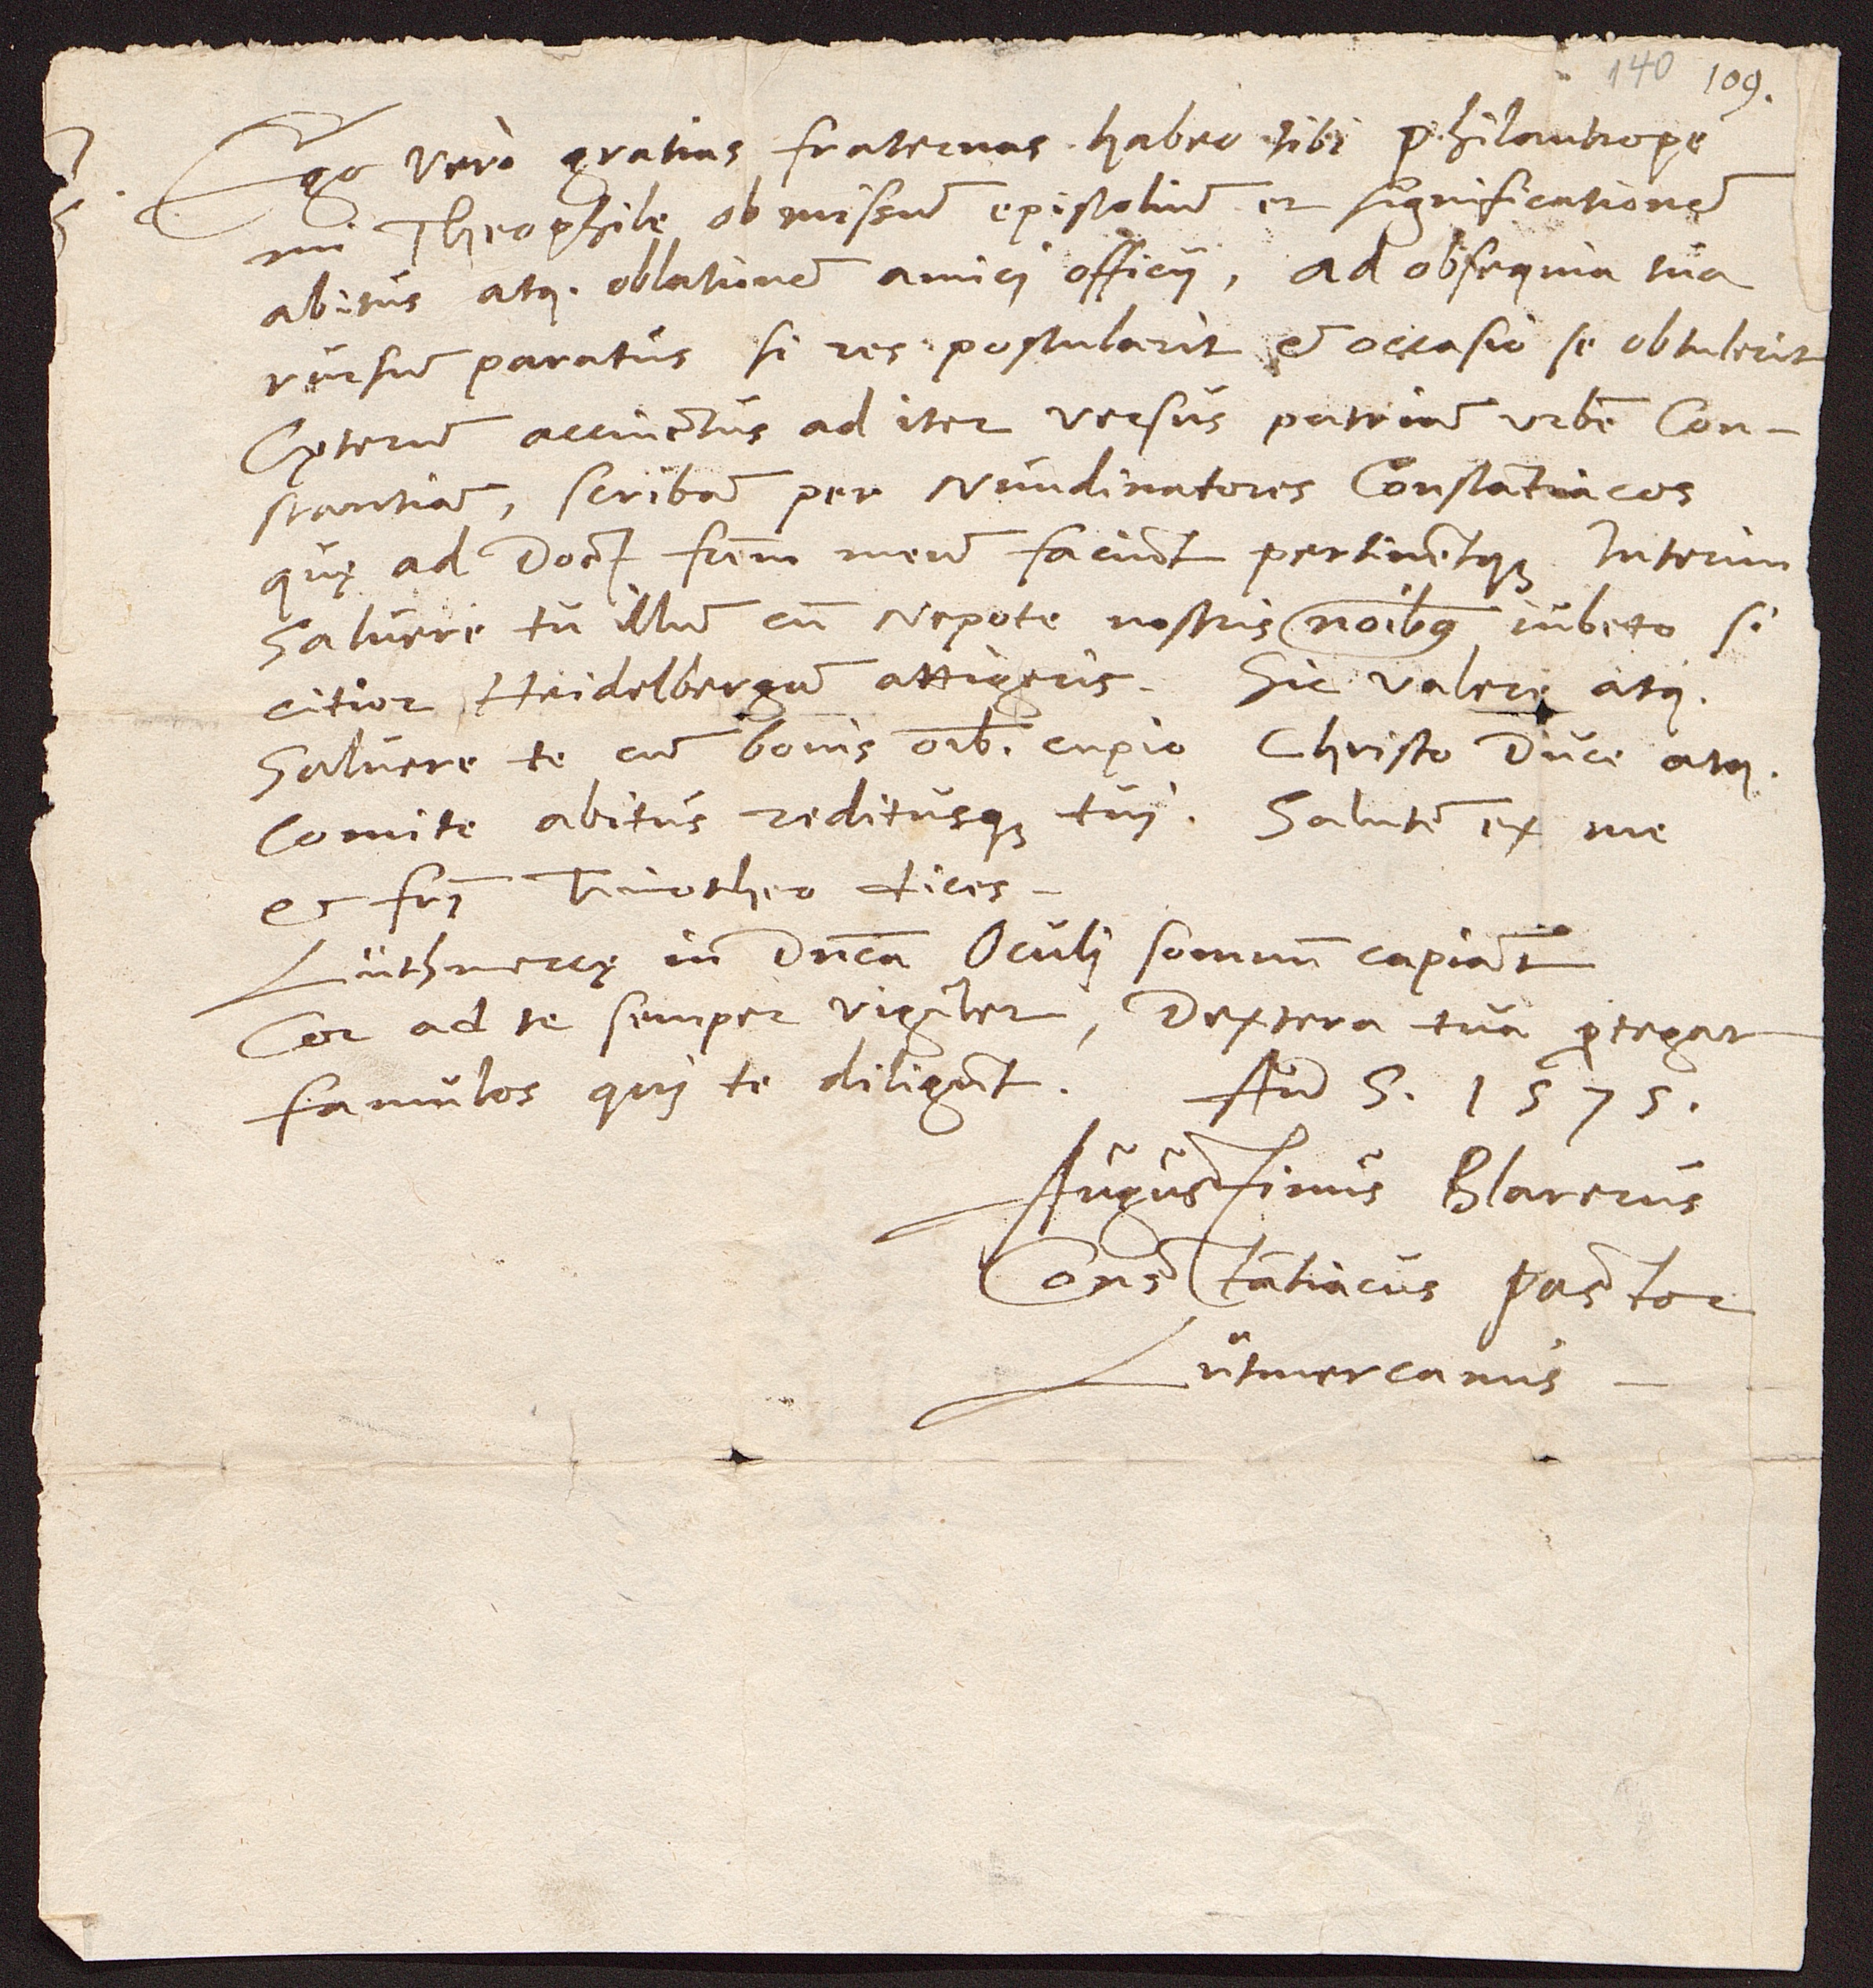 140 109.
Ego verò gratias fraternas habeo tibi philantrope
mi Theophile ob missum̄ epistoliū et significationē
abitus atq. oblationē amicj officij, ad obsequia tua
rursum̄ paratus si res postularit & occasio se obtulerit
Cęterū accinctus ad iter versus patriā vrbē Con-
stantiā, scribā per Nundinatores Constātiacos
quę ad Doct frēm meū faciūt pertinētqꝫ Interim
Saluere tu illū cū Nepote nostris noībꝯ iubeto si
citior Heidelbergā attigeris. Sic valere atq.
Saluere te cū bonis oīb. cupio Christo Duce atq.
Comite abitus reditusqꝫ tuj. Salutē ex me
et frj Timotheo dices -
Lüthmercę in Dnca Oculj somnū capiāt
Cor ad te semper vigilet, Dextera tua ꝓtegat
famulos quj te diligūt. An̄ S. 1575.
Augustinus Blarerus
Constātiacus pastor
Lütmercanus -